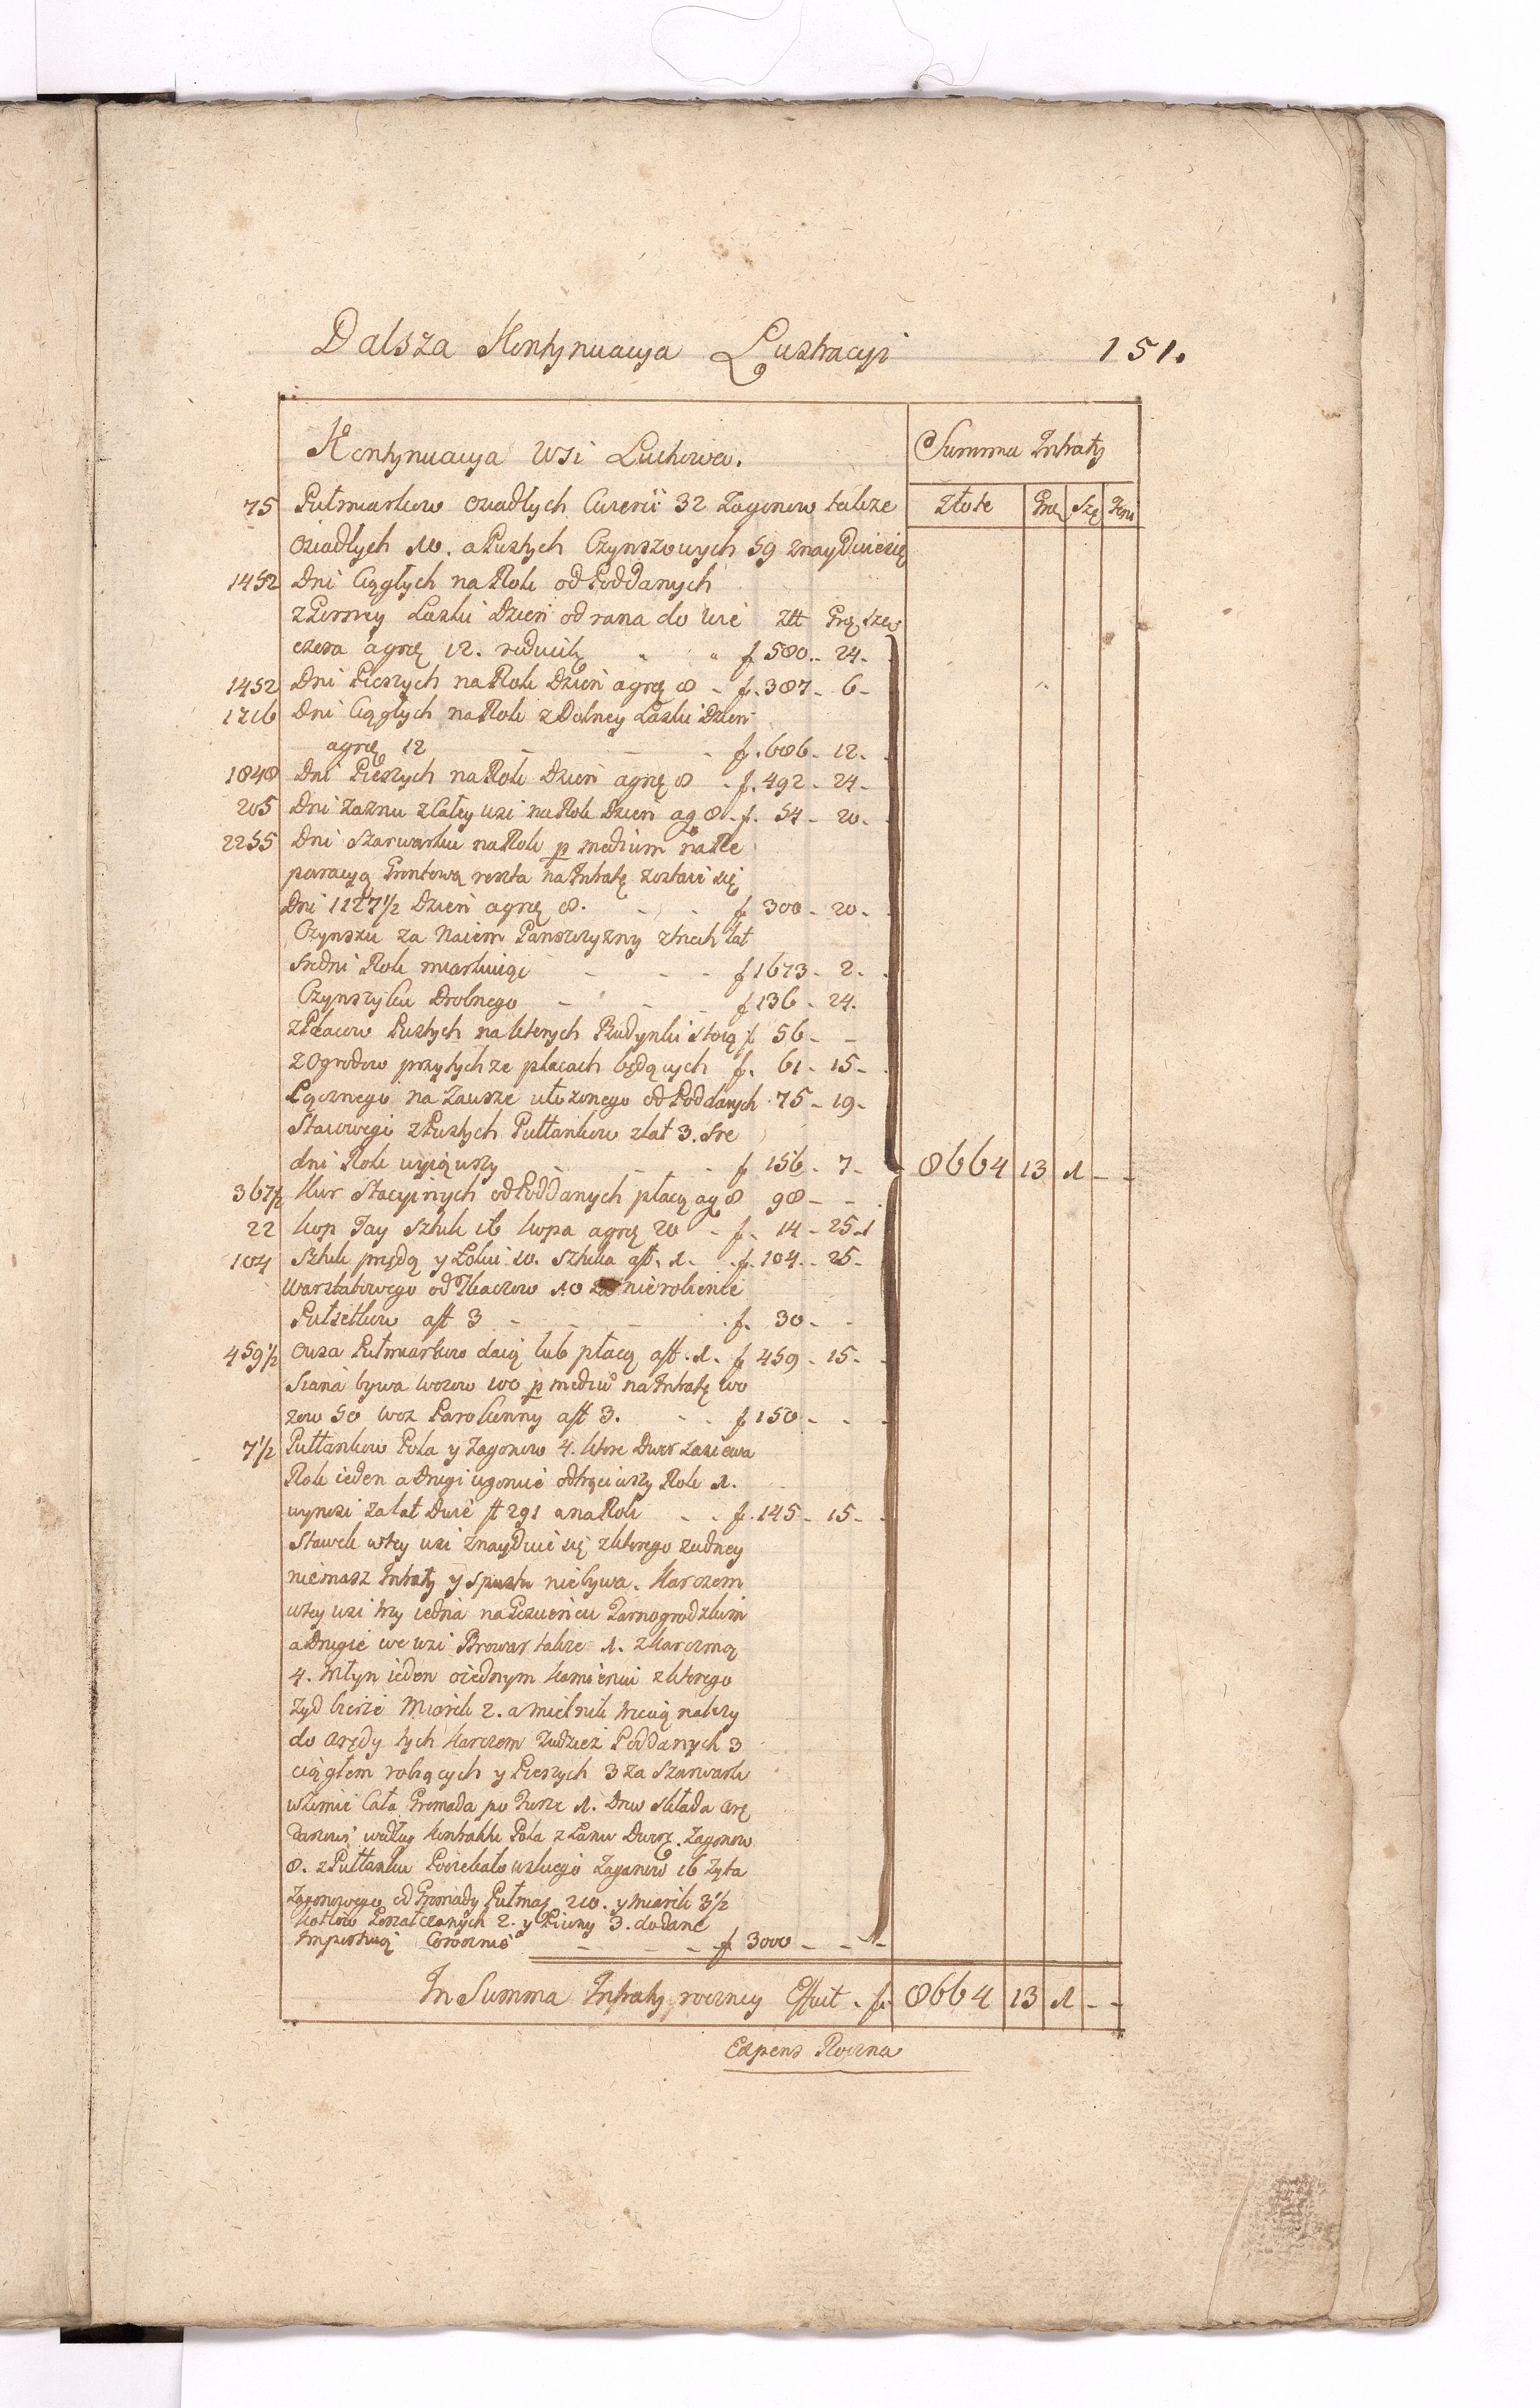 Dalsza Kontynuacya Lustracyi 151.
Kontynuacya Wsi Luchowa. Summa Intraty
75 Pułmiarkow osiadłych Cwierci 32 Zagonow także Złote Gro Szę Feni
osiadłych 10. a Pustych Czynszowych 59 znayduie się
1452 Dni Ciągłych na Rok od Poddanych
z Gorney Laski Dzien od rana do wie złt Grę Sze
czora a grę 12. reducitę f 580 - 24 -
1452 Dni Pieszych na Rok Dzien a grę 8 - f. 387 - 6 -
1716 Dni Ciągłych na Rok z Dolney Laski Dzien
a grę 12 - f. 686 - 12 -
1848 Dni Pieszych na Rok Dzien a grę 8 - f. 492 - 24 -
205 Dni Zaznu z Całey wsi na Rok Dzien a g 8 - f. 54 - 20 -
2255 Dni Szarwarku na Rok p medium na Re
paracyą Grontową reszta na Intratę zostaie się
Dni 1127 1/2 Dzien a grę 8. - f 300 - 20 -
Czynszu za Naiem Panszczyzny z trzech lat
sredni Rok miarkuiąc - f 1673 - 2 -
Czynszyku Drobnego - f 136 - 24.
z Placow Pustych na ktorych Budynki stoią f 56 - -
z Ogrodow przy tychze placach będących f. 61 - 15 -
Łącznego na Zawsze ułozonego od Poddanych 75 - 19 -
Stawowego z Pustych Pułłankow z lat 3. sre
dni Rok wyiąwszy - f 156 - 7 - 8664 13 1 - -
367 1/2 Kur Stacyinych od Poddanych płacą a g 8 98 - -
22 Kop Jay Sztuk 16 kopa a grę 20 - f. 14 - 25 - 1
104 Sztuk przędą y Łokci 10. Sztuka a ft. 1. - f. 104 - 25 -
Warsztatowego od Tkaczow 10 za nierobienie
Pułsetkow a ft 3 - f. 30 -
459 1/2 Owsa Pułmiarkow daią lub płacą a ft. 1. f 459 - 15 -
Siana bywa wozow 100 p mediu na Intratę wo
zow 50 woz Parokonny a ft 3. - f 150 - -
7 1/2 Pułłankow Pola y Zagonow 4. ktore Dwor zasiewa
Rok ieden a Drugi ugoruie odtrąciwszy Rok 1.
wynosi za lat Dwie ft 291 a na Rok - f. 145 - 15 -
Stawek w tey wsi znayduie się z ktorego zadney
niemasz Intraty y spustu niebywa. Karczem
w tey wsi trzy iedna na Goscincu Tarnogrodzkim
a Drugie we wsi Browar także 1. z karczmą
4. Młyn ieden o iednym kamieniu z ktorego
Zyd bierze Miarek 2. a mielnik trzecią nalezy
do arędy tych karczem tudziez Poddanych 3
ciągłem robiących y Pieszych 3 za Szarwark
w Zimie Cała Gromada po Furze 1. Drew składa are
darzowi według Kontraktu Pola z Łanu Dworz. Zagonow
8. z Pułłanku Zagonow 16 Zyta
Zagonowego od Gromady Pułmaj 210. y miarek 3 1/2
Kotłow 2. y Piwny 3. dodane
Importuią Corocznie - f 3000 - - -
In Summa Intraty roczney Effuit - f. 8664 13 1 - -
Expens Roczna